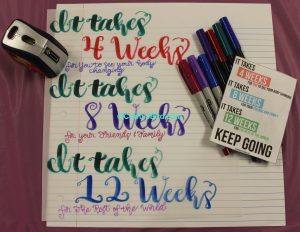 It takes
4 Weeks
for You to see your body
changing
It takes
8 Weeks
for your Friends & Family
It takes
12 Weeks
for the Rest of the World
IT TAKES
4 WEEKS
IT TAKES
8 WEEKS
IT TAKES
12 WEEKS
KEEP GOING